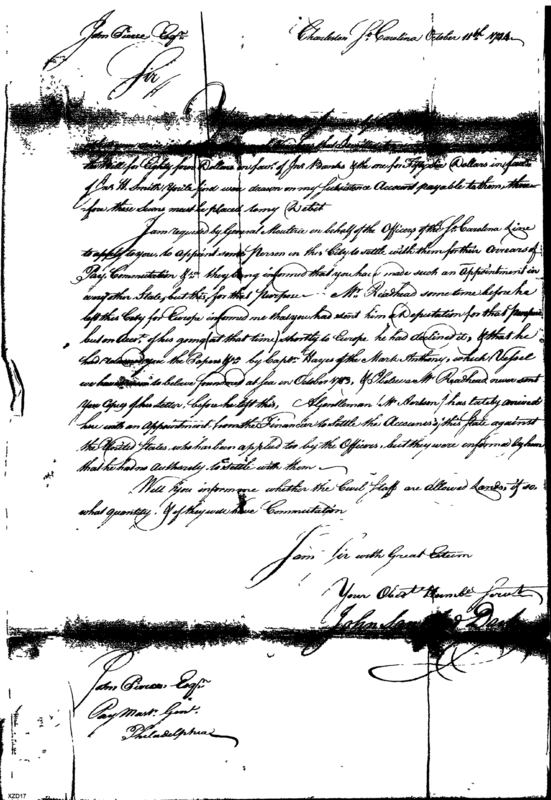 John Pierce Esqr. Charleston So. Carolina October 11th 1784
Sir
the Bill for Eighty four Dollars in favr. of Jno. Banks & the one for Dollars in favr.
of Jno. H. Smith, You'll find were drawn on my Subsistence Account payable to them, there-
fore these sums must be placed to my Debit
I am requested by General Moultrie on behalf of the Officers of the So. Carolina Line
to apply to you to Appoint some Person in this City to settle with them for their Arrears of
Pay, Commutation &ca. they being informed that you have made such an Appointment in
every other State, but this, for that purpose Mr. Readhead some time before he
left this City for Europe informed me that you had sent him a Deputation for that purpose
but on Acct. of his going (at that time) shortly to Europe he had declined it, & that he
had returned you the Papers &ca. by Capt. Hayes of the Mark Anthony, which Vessel
we have to believe foundered at sea in October 1783, & I believe Mr. Readhead never sent
you a Copy of his Letter, before he left this, A Gentleman Mr. has lately arrived
here with an Appointment from the Financier to settle the Accounts of this State against
the United States, who has been applied too by the Officers, but they were informed by him
that he had no Authority to settle with them
Will you inform me whether the Civil Staff are allowed Lands, if so,
what quantity. & if they will have Commutation
I am Sir with Great Esteem
Your Obedt. Humble Servt.
John Sandford Dart
John Pierce Esqr.
Pay Mastr. Genl.
Philadelphia
XZD17